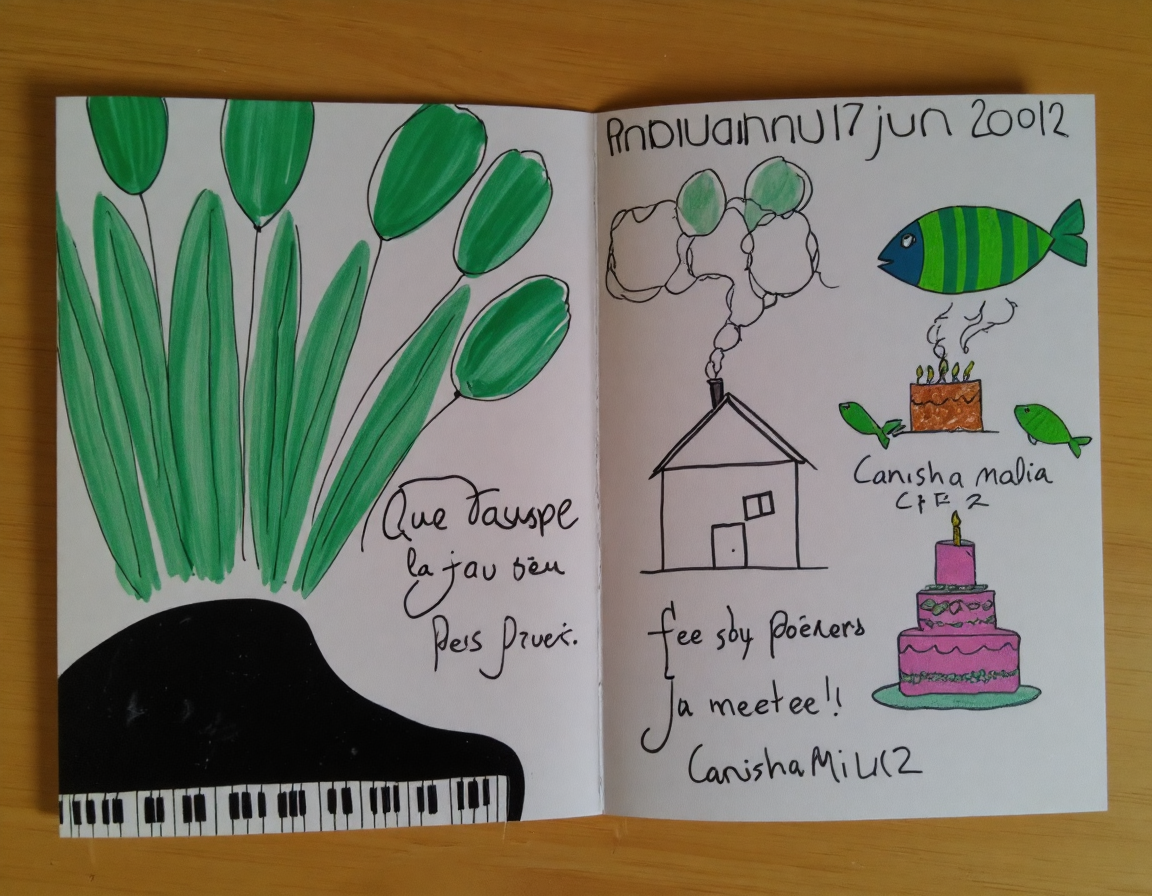 Que Tauspe
la jau sëu
Pess Pruek.
17 jun 20012
Canisha malia
CFE 2
fee sby Poéners
Ja meetee!!
Canisha